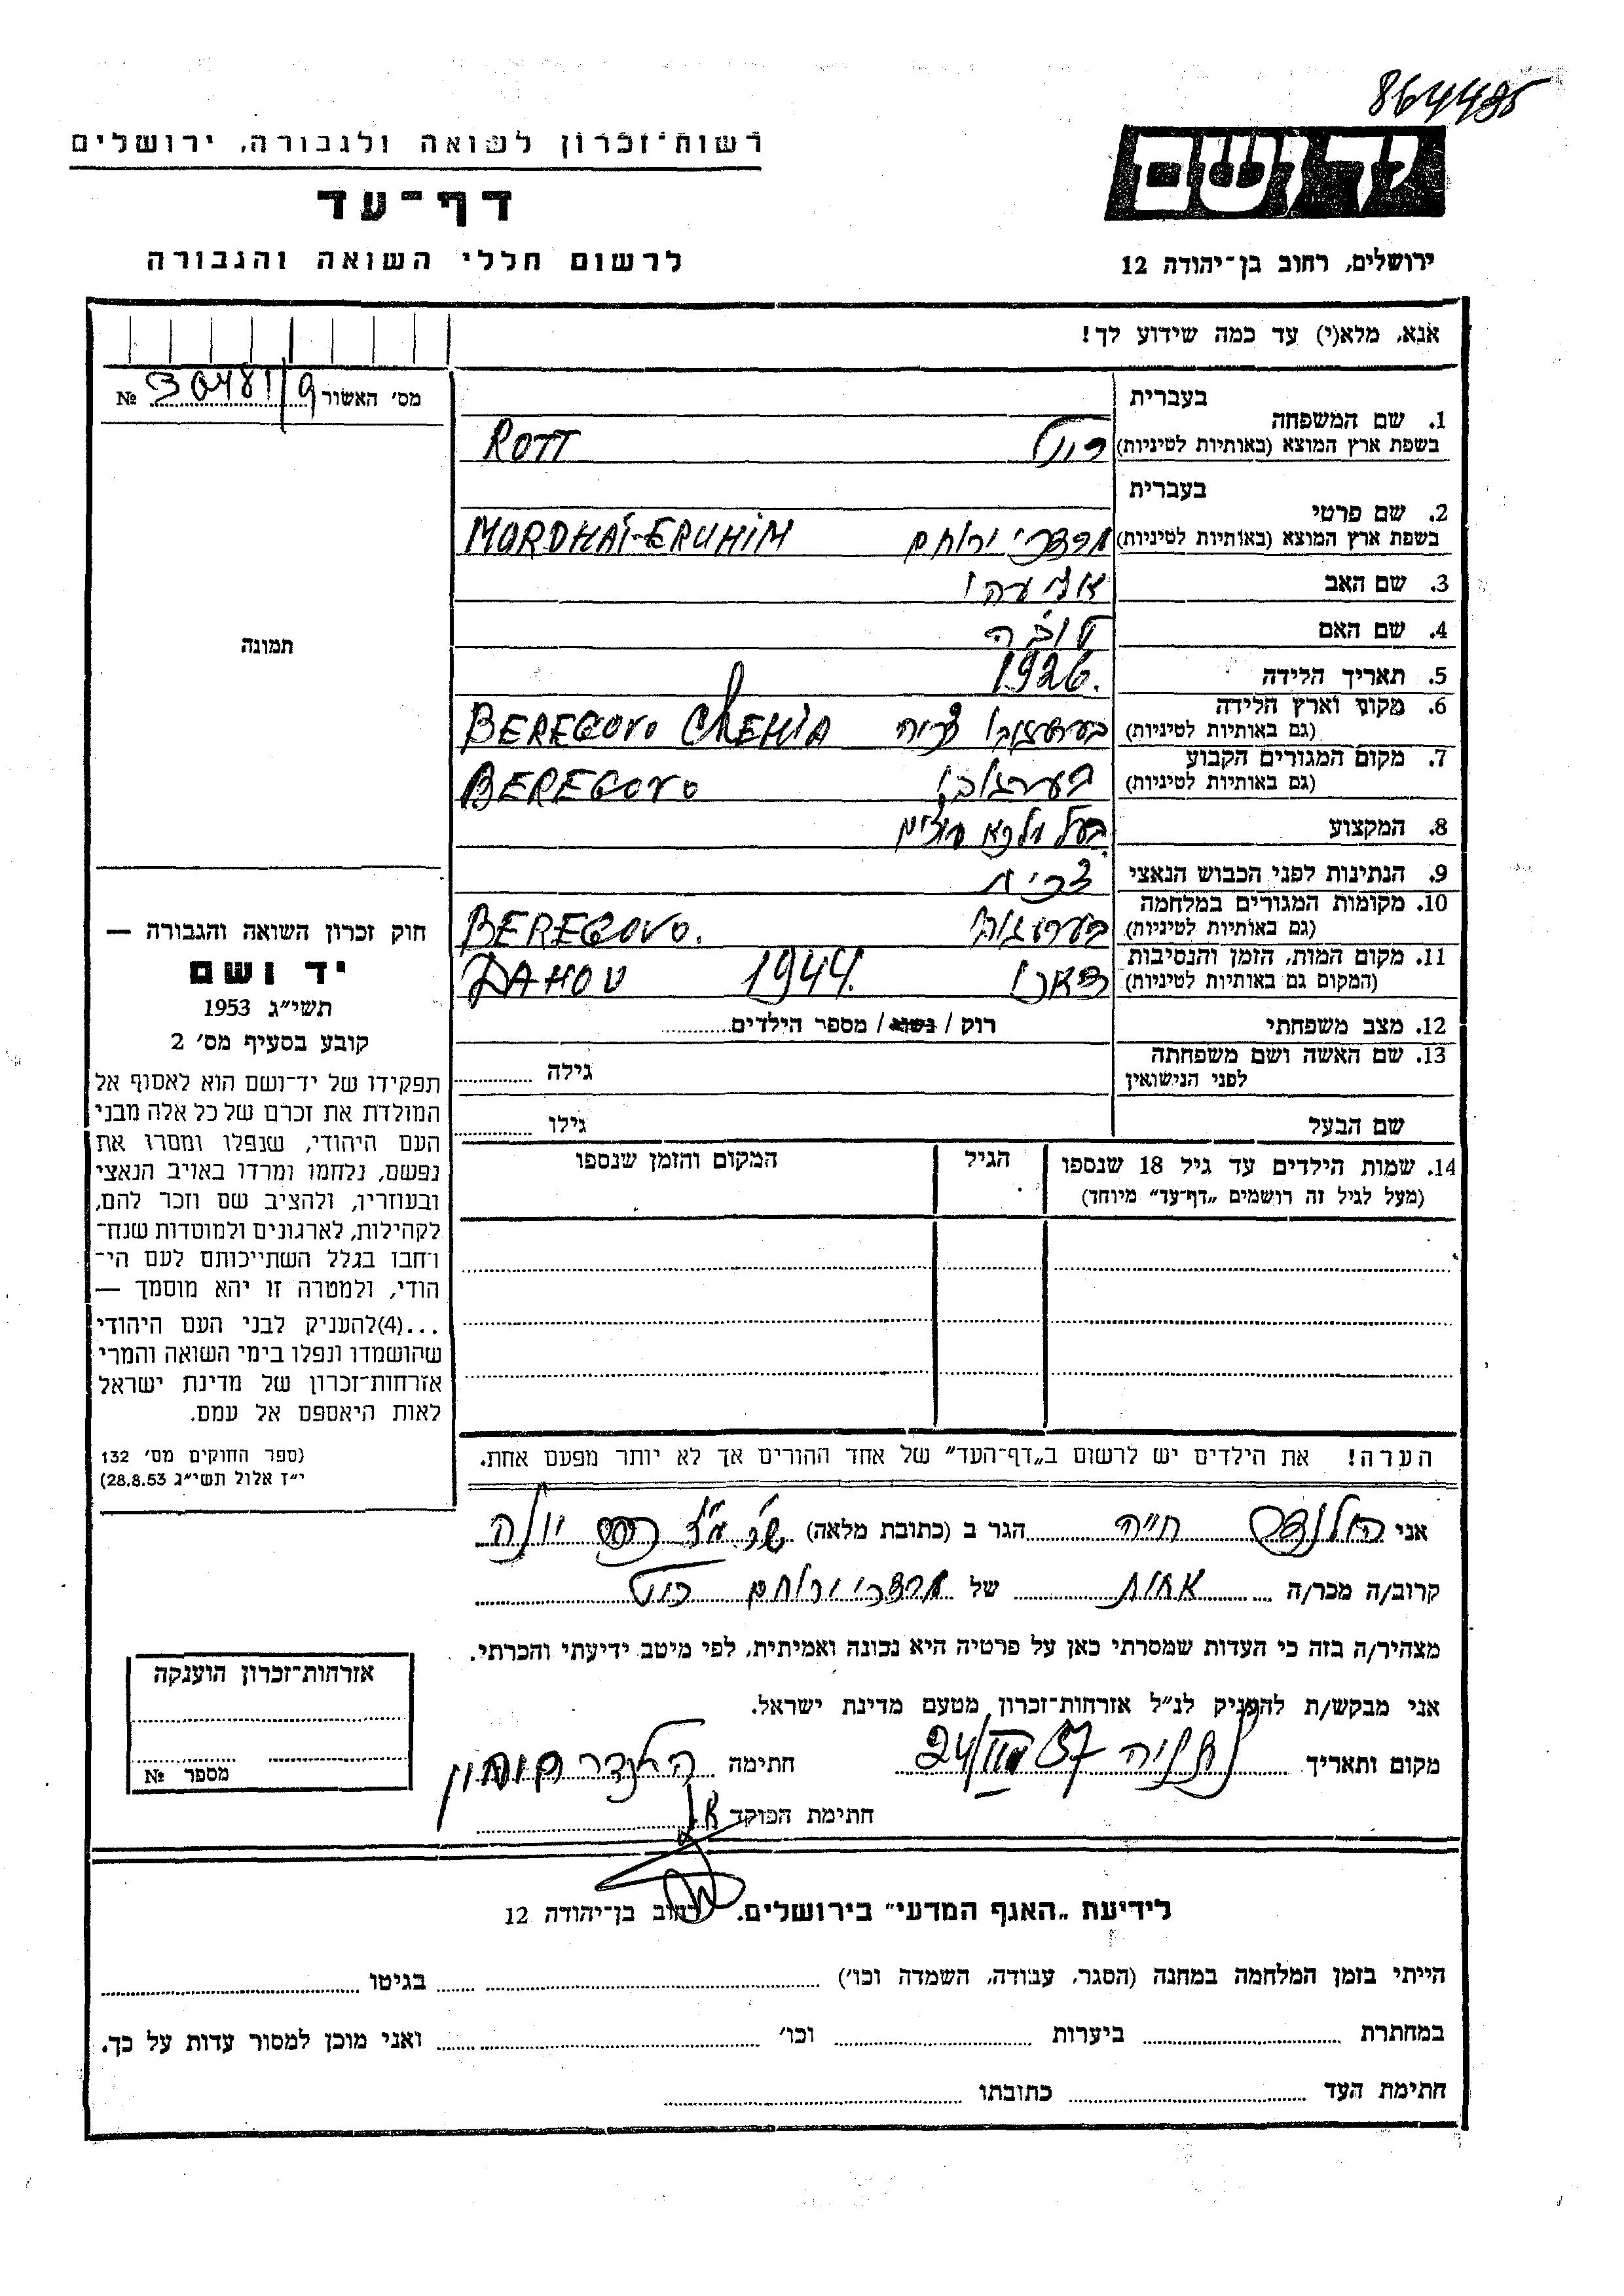 864495
רשות־זכרון לשואה ולגבורה, ירושלים
יד ושם
דף־עד
לרשום חללי השואה והגבורה
ירושלים, רחוב בן־יהודה 12
אנא, מלא(י) עד כמה שידוע לך!
מס׳ האשור 30481/9 №
תמונה
1. שם המשפחה
בעברית
בשפת ארץ המוצא (באותיות לטיניות)
רוט ROTT
2. שם פרטי
בעברית
בשפת ארץ המוצא (באותיות לטיניות)
מרדכי ירוחם MORDHAI-ERUHIM
3. שם האב
4. שם האם טובה
5. תאריך הלידה 1926.
6. מקום וארץ הלידה
(גם באותיות לטיניות)
BEREGOVO CHEHIA
7. מקום המגורים הקבוע
(גם באותיות לטיניות)
BEREGOVO
8. המקצוע בעל מלאכה
9. הנתינות לפני הכבוש הנאצי צכית
10. מקומות המגורים במלחמה
(גם באותיות לטיניות)
BEREGOVO.
11. מקום המות, הזמן והנסיבות
(המקום גם באותיות לטיניות)
דאכו 1944. DAHOU
12. מצב משפחתי רוק / נשוא / מספר הילדים
13. שם האשה ושם משפחתה
לפני הנישואין
גילה
שם הבעל גילו
14. שמות הילדים עד גיל 18 שנספו
(מעל לגיל זה רושמים „דף־עד״ מיוחד)
הגיל
המקום והזמן שנספו
חוק זכרון השואה והגבורה —
יד ושם
תשי״ג 1953
קובע בסעיף מס׳ 2
תפקידו של יד־ושם הוא לאסוף אל
המולדת את זכרם של כל אלה מבני
העם היהודי, שנפלו ומסרו את
נפשם, נלחמו ומרדו באויב הנאצי
ובעוזריו, ולהציב שם וזכר להם,
לקהילות, לארגונים ולמוסדות שנח־
רחבו בגלל השתייכותם לעם הי־
הודי, ולמטרה זו יהא מוסמך —
...(4)להעניק לבני העם היהודי
שהושמדו ונפלו בימי השואה והמרי
אזרחות־זכרון של מדינת ישראל
לאות היאספם אל עמם.
(ספר החוקים מס׳ 132
י״ז אלול תשי״ג 28.8.53)
הערה! את הילדים יש לרשום ב„דף־העד״ של אחד ההורים אך לא יותר מפעם אחת.
אני הלנדר חיה הגר ב (כתובת מלאה)
קרוב/ה מכר/ה אחות של מרדכי ירוחם רוט
מצהיר/ה בזה כי העדות שמסרתי כאן על פרטיה היא נכונה ואמיתית, לפי מיטב ידיעתי והכרתי.
אני מבקש/ת להעניק לנ״ל אזרחות־זכרון מטעם מדינת ישראל.
מקום ותאריך נתניה 24/III 57 חתימה הלנדר
חתימת הפוקד
אזרחות־זכרון הוענקה
מספר №
לידיעת „האגף המדעי״ בירושלים. רחוב בן־יהודה 12
הייתי בזמן המלחמה במחנה (הסגר, עבודה, השמדה וכו׳) בגיטו
במחתרת ביערות וכו׳ ואני מוכן למסור עדות על כך.
חתימת העד כתובתו